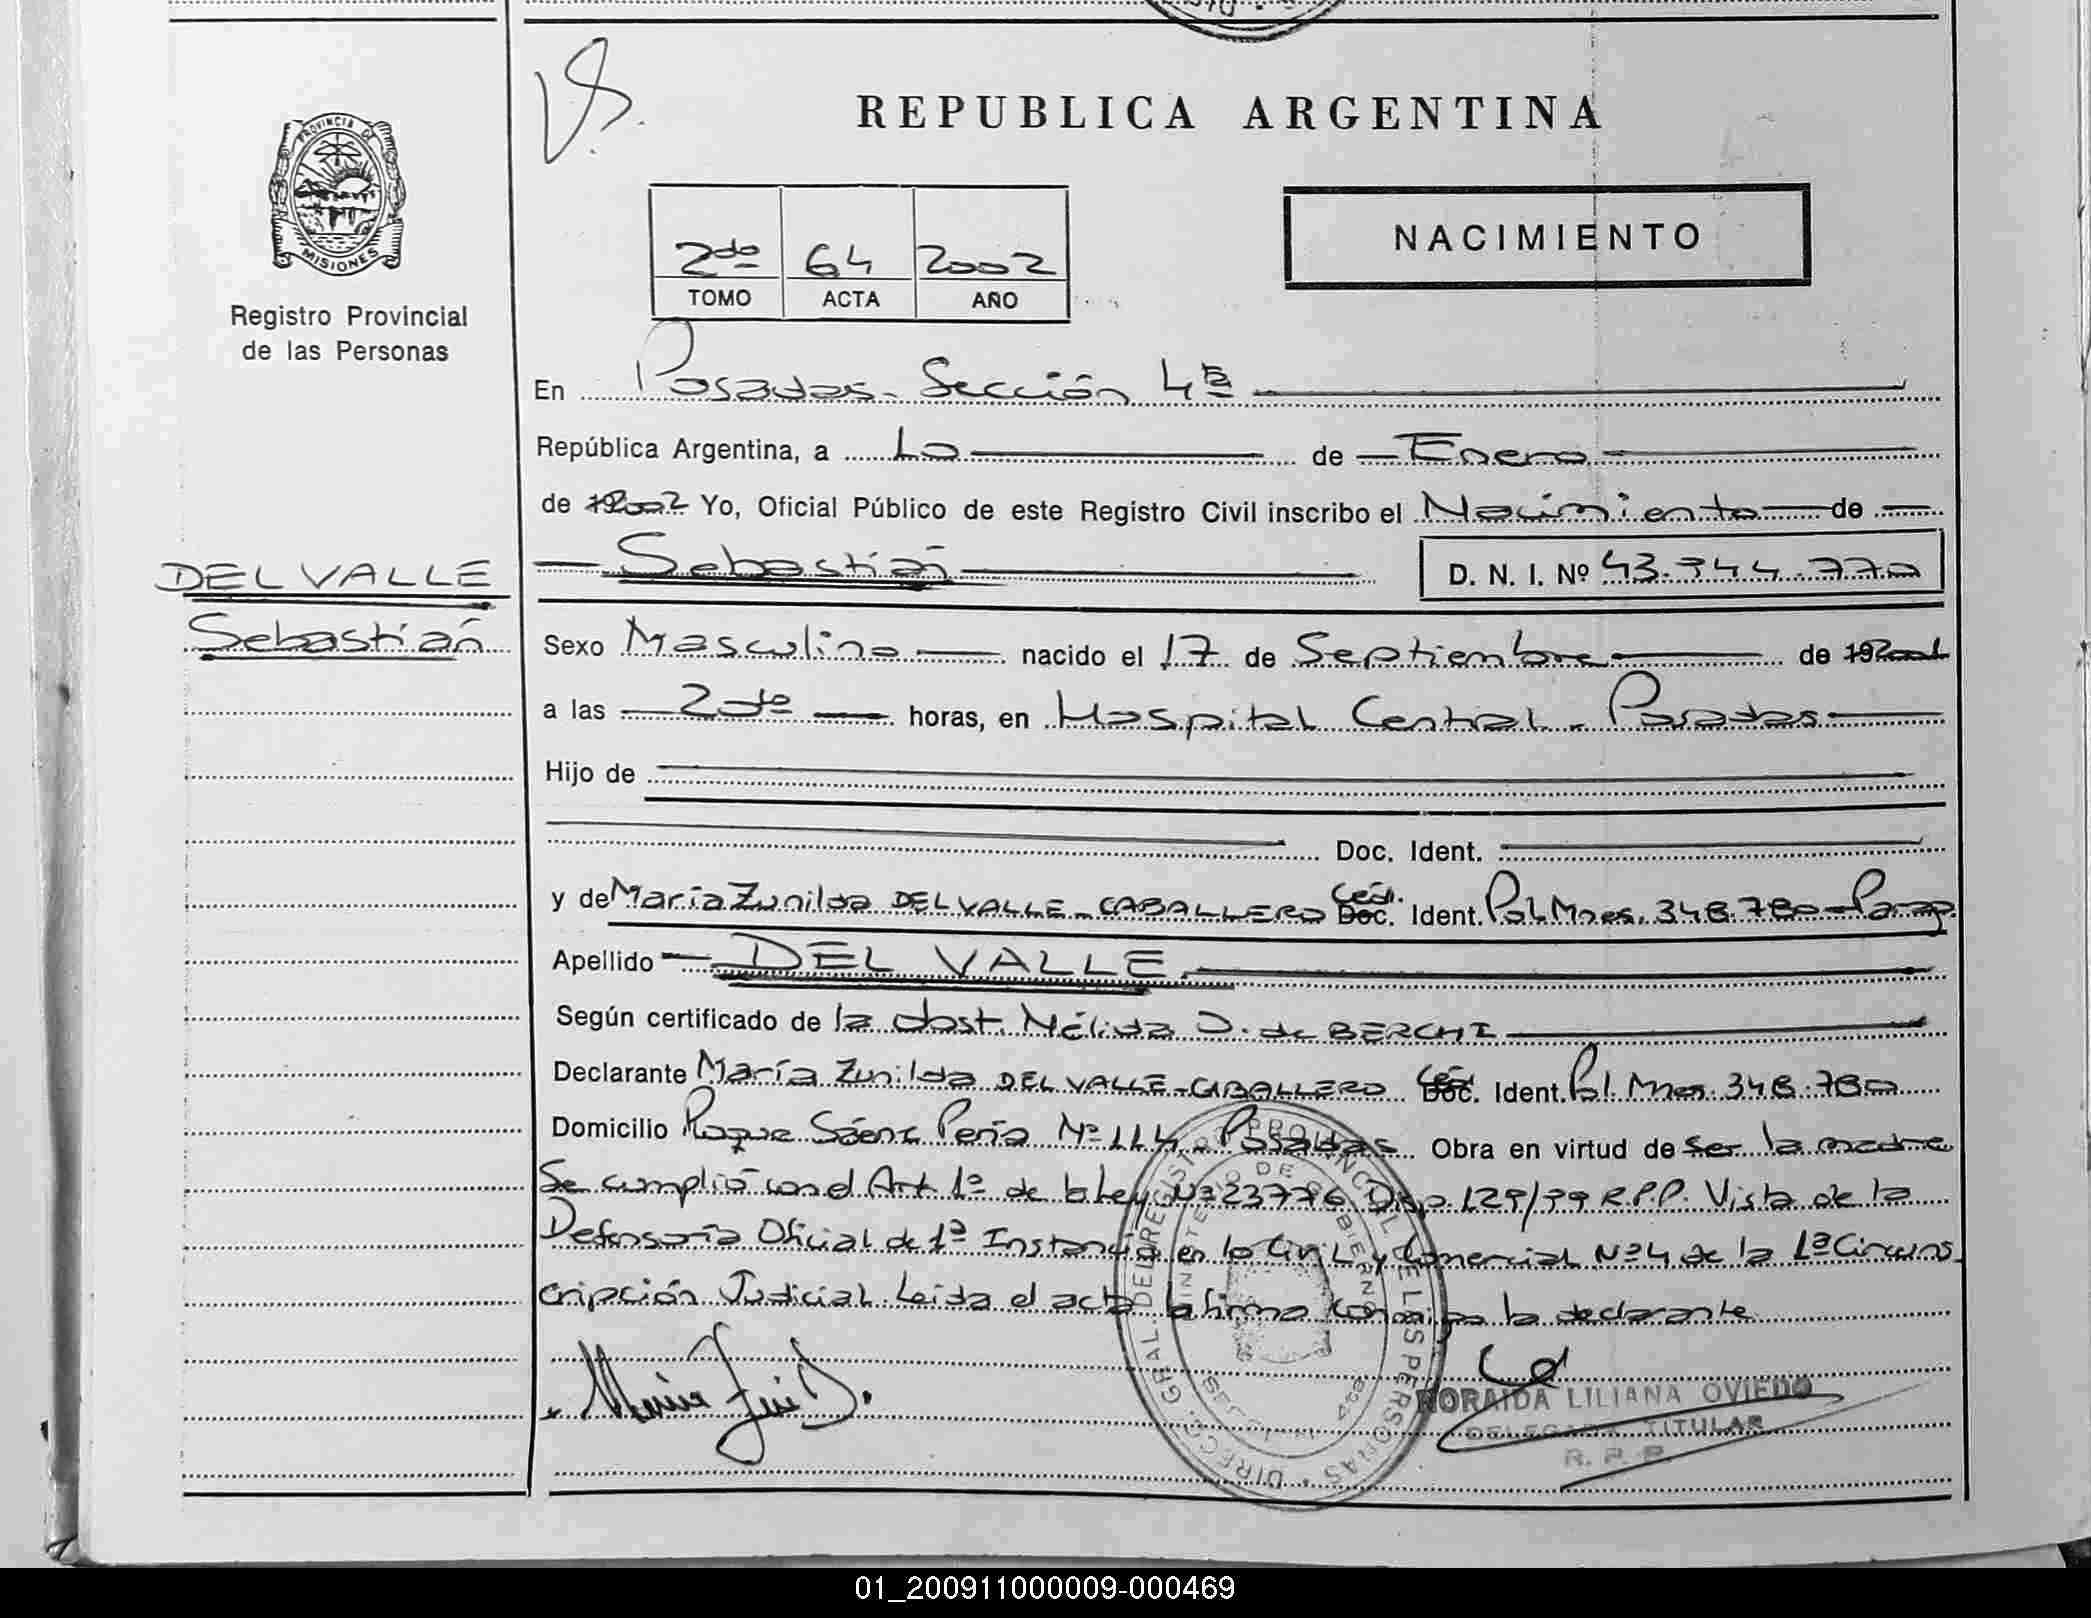 REPUBLICA ARGENTINA
PROVINCIA DE
MISIONES
Registro Provincial
de las Personas
2do 64 2002
TOMO ACTA AÑO
NACIMIENTO
En Posadas - Sección 4ta
República Argentina, a 10 de Enero
de 2002 Yo, Oficial Público de este Registro Civil inscribo el Nacimiento de
Sebastián D. N. I. Nº 43.344.770
DEL VALLE
Sebastián
Sexo Masculino nacido el 17 de Septiembre de 2001
a las horas, en Hospital Central - Posadas
Hijo de
Doc. Ident.
y de María Zunilda DEL VALLE - CABALLERO Céd. Doc. Ident. Pol. Mnes. 348.780 - Parag.
Apellido DEL VALLE
Según certificado de la obst. Nélida D. de BERCHI
Declarante María Zunilda DEL VALLE - CABALLERO Céd. Doc. Ident. Pol. Mnes. 348.780
Domicilio Roque Sáenz Peña Nº 114 Posadas Obra en virtud de ser la madre
Se cumplió con el Art. 1º de la Ley Nº 23776 Disp. 129/99 R.P.P. Vista de la
Defensoría Oficial de 1ª Instancia en lo Civil y Comercial Nº 4 de la 1ª Circuns
cripción Judicial. Leída el acta la firma conmigo la declarante
NORAIDA LILIANA OVIEDO
DELEGADA TITULAR
R. P. P.
DIRECC. GRAL. DEL REGISTRO PROVINCIAL DE LAS PERSONAS
MINISTERIO DE GOBIERNO
01_200911000009-000469